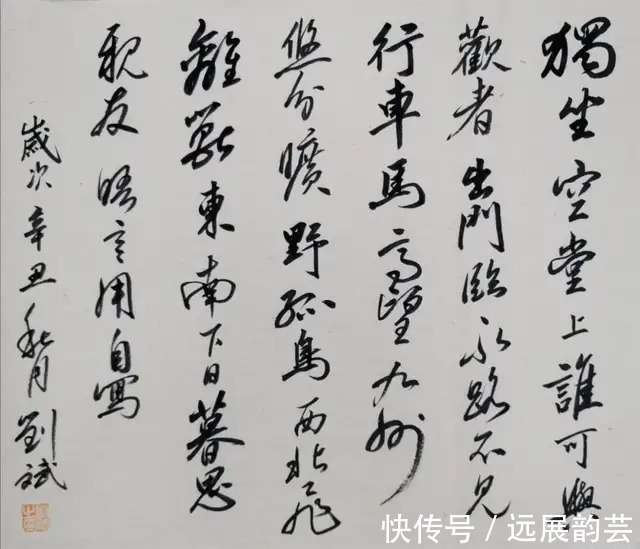 獨坐空堂上誰可與
歡者出門臨永路不見
行車馬高望九州
悠分曠野孤鳥西北飛
離獸東南下日暮思
親友晤言用自寫
歲次辛丑秋月劉斌
快传号 / 远展韵芸